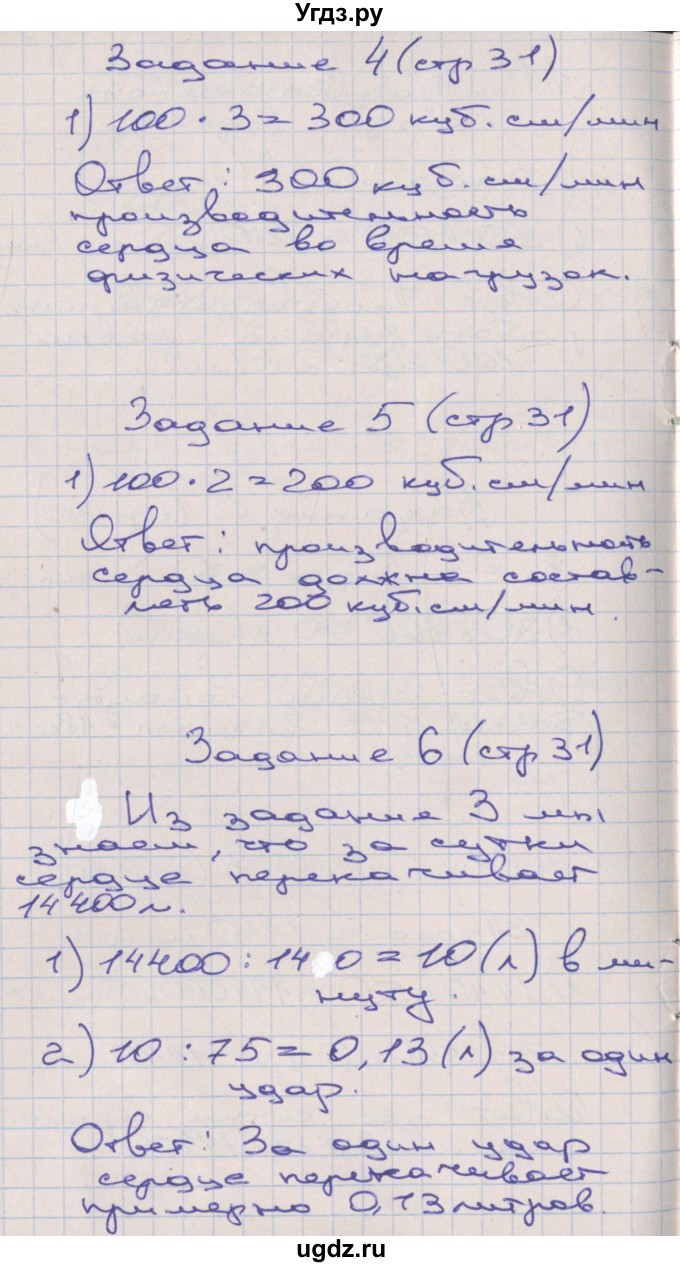 Угдз.ру
Задание 4 (стр 31)
1) 100 · 3 = 300 куб. см/мин
Ответ: 300 куб. см/мин
производительность
сердца во время
физических нагрузок.
Задание 5 (стр 31)
1) 100 · 2 = 200 куб. см/мин
Ответ: производительность
сердца должна состав-
лять 200 куб. см/мин.
Задание 6 (стр 31)
Из задание 3 мы
знаем, что за сутки
сердце перекачивает
14 400 л.
1) 14400 : 14 0 = 10 (л) в ми-
нуту.
2) 10 : 75 = 0,13 (л) за один
удар.
Ответ: За один удар
сердце перекачивает
примерно 0,13 литров.
ugdz.ru